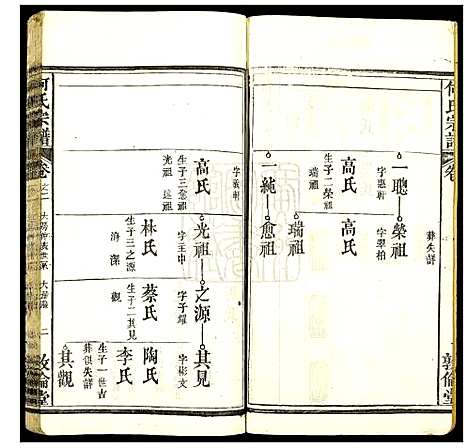 何氏宗譜
卷
敦倫堂
一聰
榮祖
字惠軒
字翠柏
葬失詳
高氏
高氏
生子二榮祖
瑞祖
瑞祖
一純
愈祖
字敦軒
高氏
光祖
之源
其見
生子三愈祖
光祖
字玉中
字子耀
字彬文
林氏
蔡氏
陶氏
生子三之源
生子二其見
其觀
李氏
生子一世吉
葬俱失詳
其觀
何氏宗譜
卷之二
二
敦倫堂